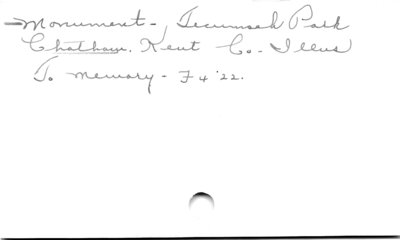 Monument - Tecumseh Park
Chatham. Kent Co. - Illus
To memory - F 4 '22.